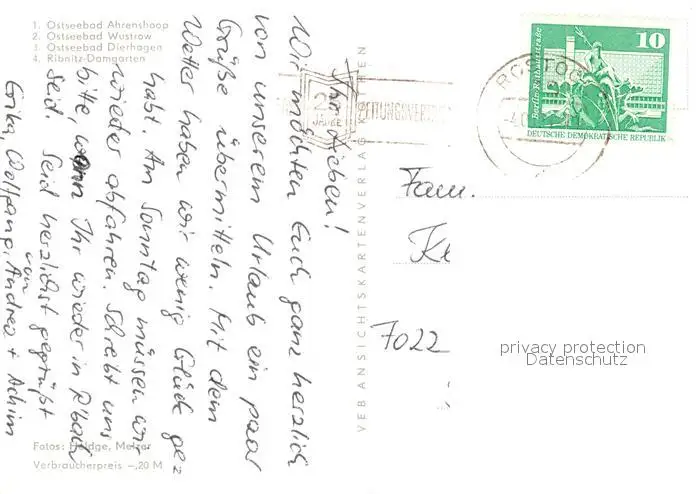 1. Ostseebad Ahrenshoop
2. Ostseebad Wustrow
3. Ostseebad Dierhagen
4. Ribnitz-Damgarten
Ihr Lieben!
Wir möchten Euch ganz herzlich
von unserem Urlaub ein paar
Grüße übermitteln. Mit dem
Wetter haben wir wenig Glück ge=
habt. Am Sonntag müssen wir
wieder abfahren. Schreibt uns
bitte, wann Ihr wieder in
seid. Seid herzlichst gegrüßt
von
Erika, Wolfgang, Andrea + Achim
Fotos: Heldge, Melzer
Verbraucherpreis –,20 M
VEB ANSICHTSKARTENVERLAG
25
JAHRE
ROSTOCK
10
Berlin, Rathausstraße
DEUTSCHE DEMOKRATISCHE REPUBLIK
Fam.
Ke
7022
privacy protection
Datenschutz